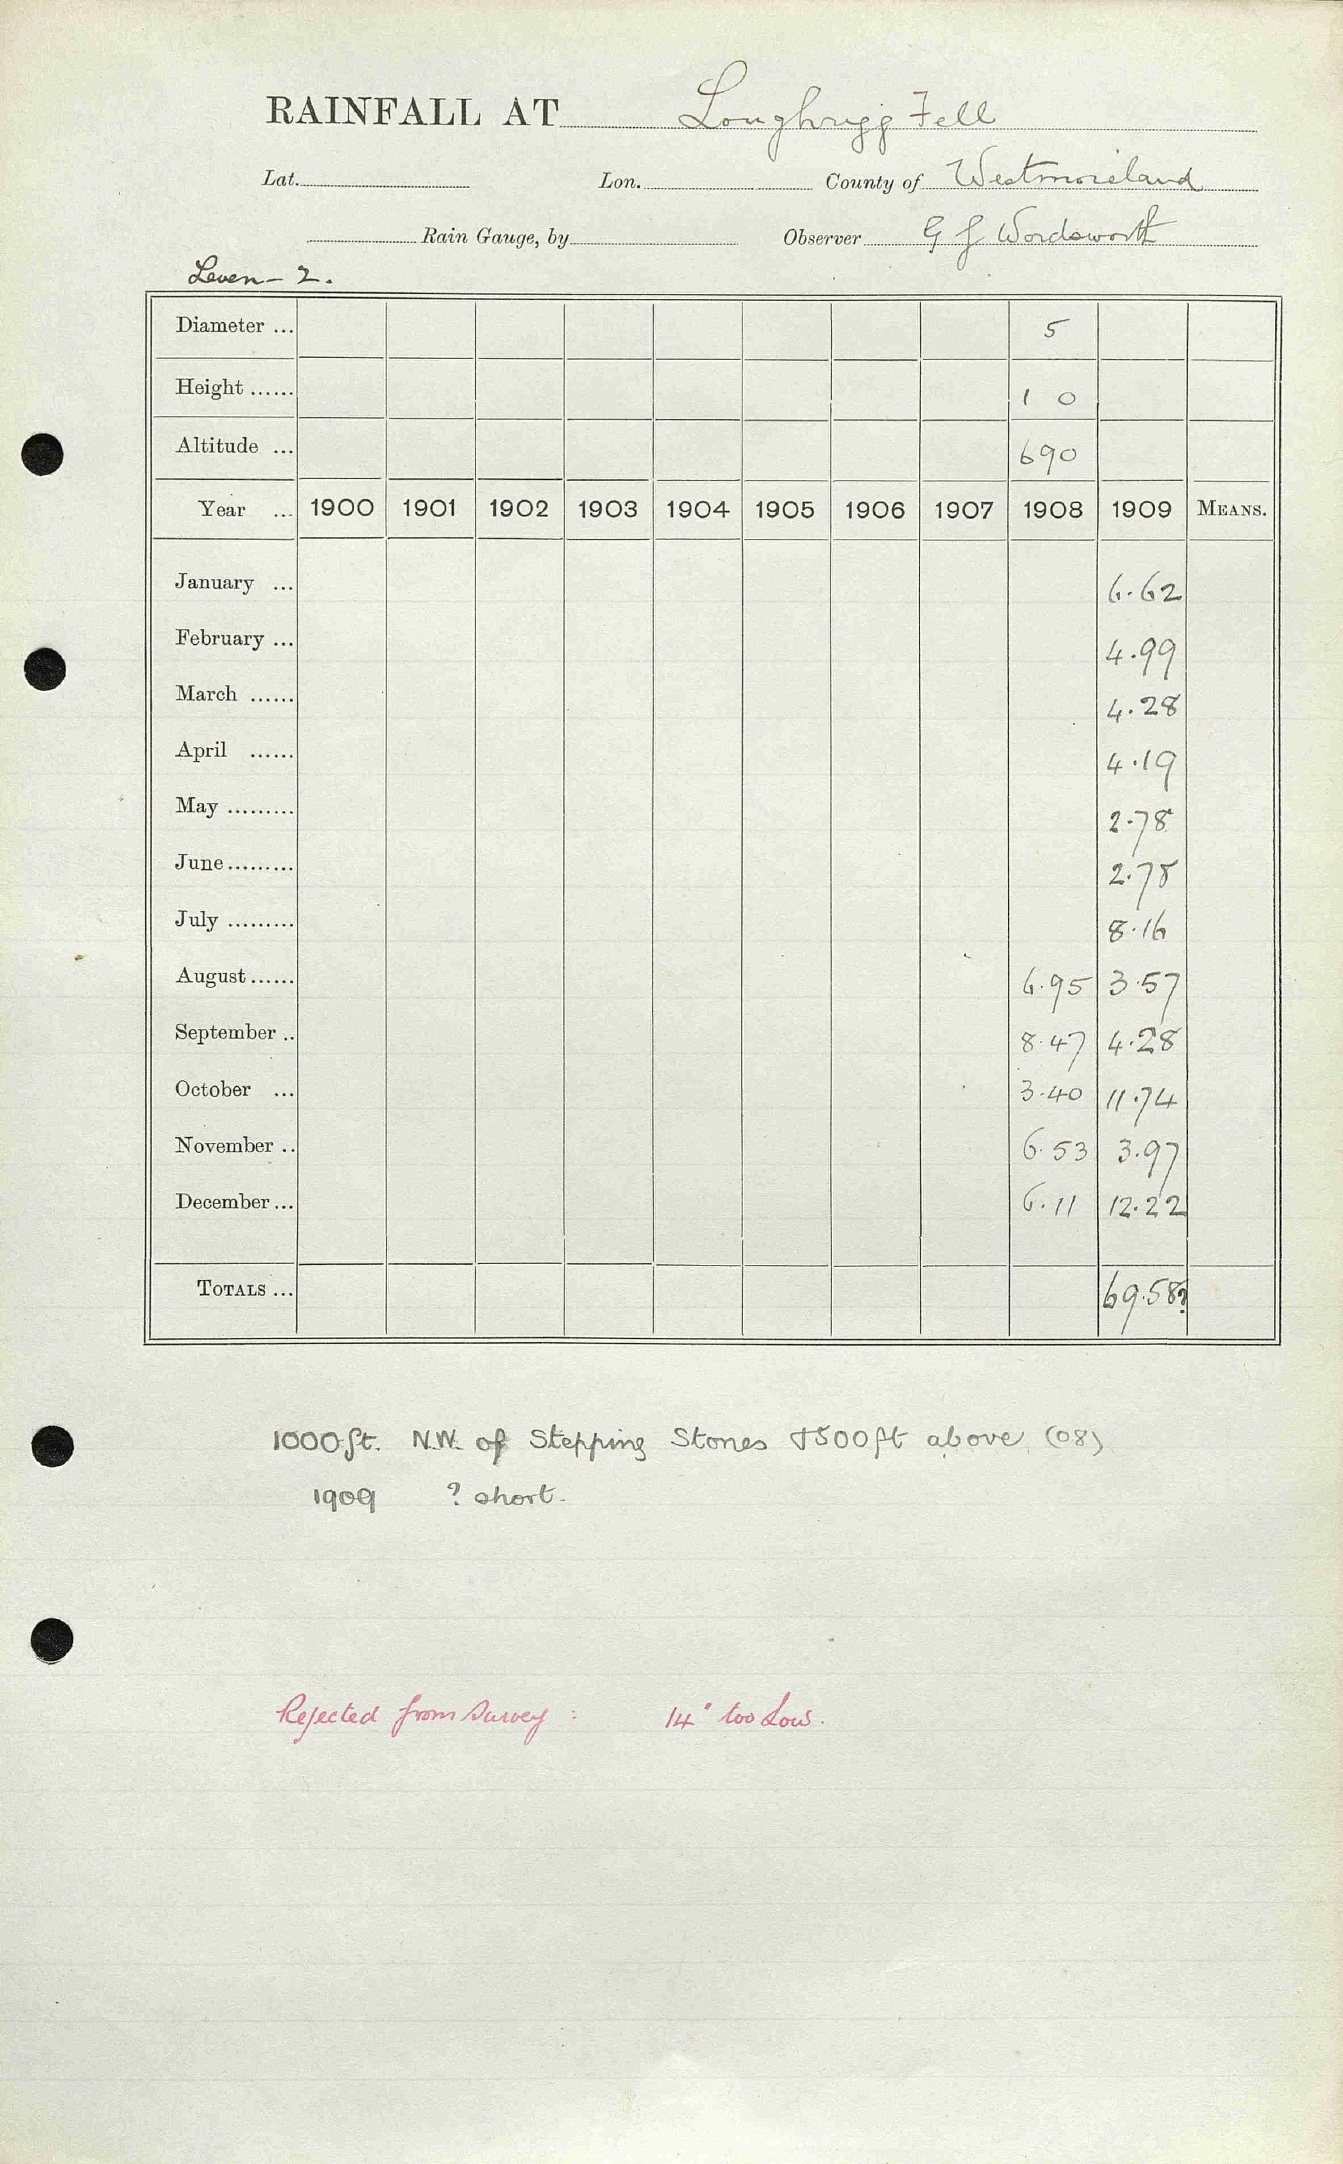 RAINFALL AT Loughrigg Fell
Lat. Lon. County of Westmoreland
Rain Gauge, by Observer G J Wordsworth
Leven - 2.
Diameter ... 5
Height ...... 1 0
Altitude ... 690
Year ... 1900 1901 1902 1903 1904 1905 1906 1907 1908 1909 MEANS.
January ... 6.62
February ... 4.99
March ...... 4.28
April ...... 4.19
May ......... 2.78
June ......... 2.78
July ......... 8.16
August ...... 6.95 3.57
September .. 8.47 4.28
October ... 3.40 11.74
November .. 6.53 3.97
December ... 6.11 12.22
TOTALS ... 69.58?
1000 ft. N.W. of Stepping Stones & 500 ft above (08)
1909 ? short.
Rejected from Survey : 14" too Low.